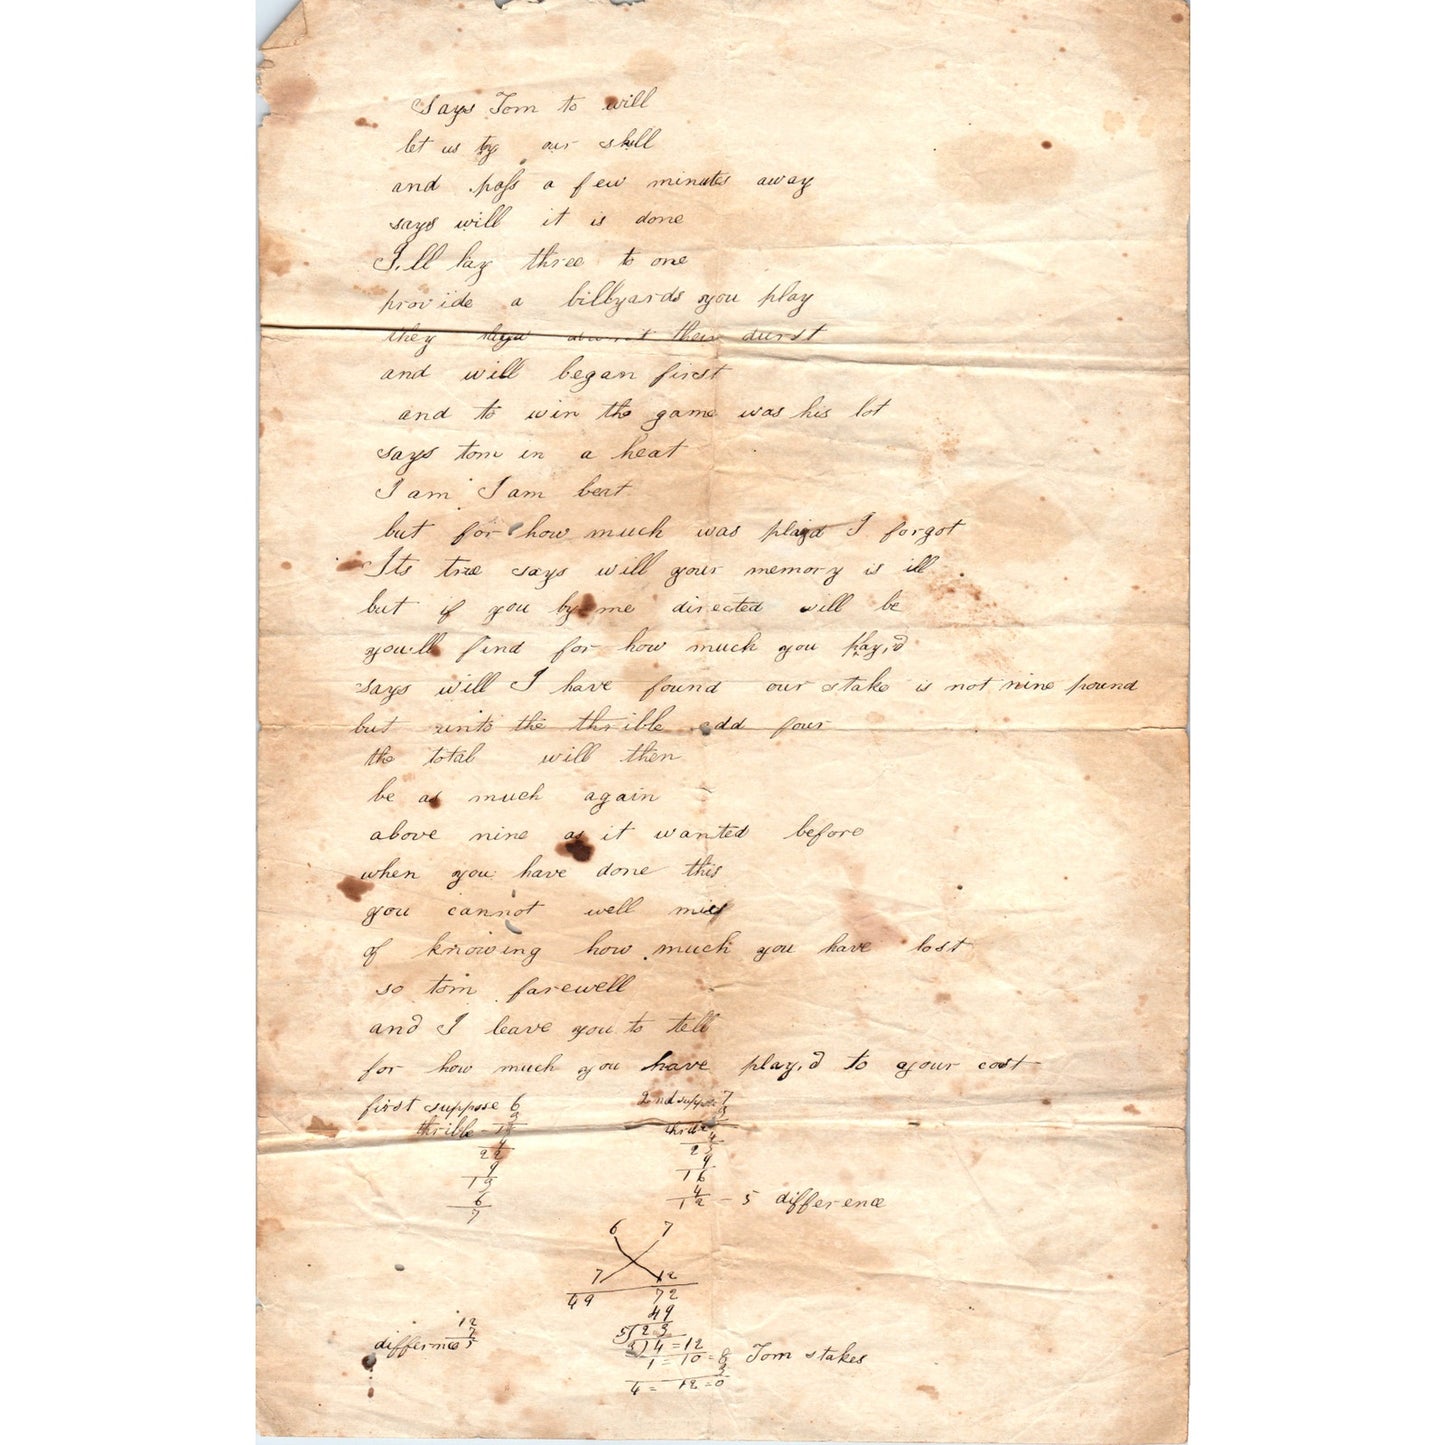 Says Tom to will
let us try our skill
and pass a few minutes away
says will it is done
I,ll lay three to one
provide a billyards you play
they their durst
and will began first
and to win the game was his lot
says tom in a heat
I am I am beat
but for how much was playd I forgot
Its true says will your memory is ill
but if you by me directed will be
you,ll find for how much you play,d
says will I have found our stake is not nine pound
but unto the thrible add four
the total will then
be as much again
above nine as it wanted before
when you have done this
you cannot well miss
of knowing how much you have lost
so tom farewell
and I leave you to tell
for how much you have play,d to your cost
first suppose 6 2nd suppose 7
3 3
thrible 18
4 4
22 25
9 9
13 16
6 4
7 12 - 5 difference
6 7
7 12
49 72
12 49
7 5)23
difference 5 3)4=12
1=10=8 Tom stakes
3
4= 12=0